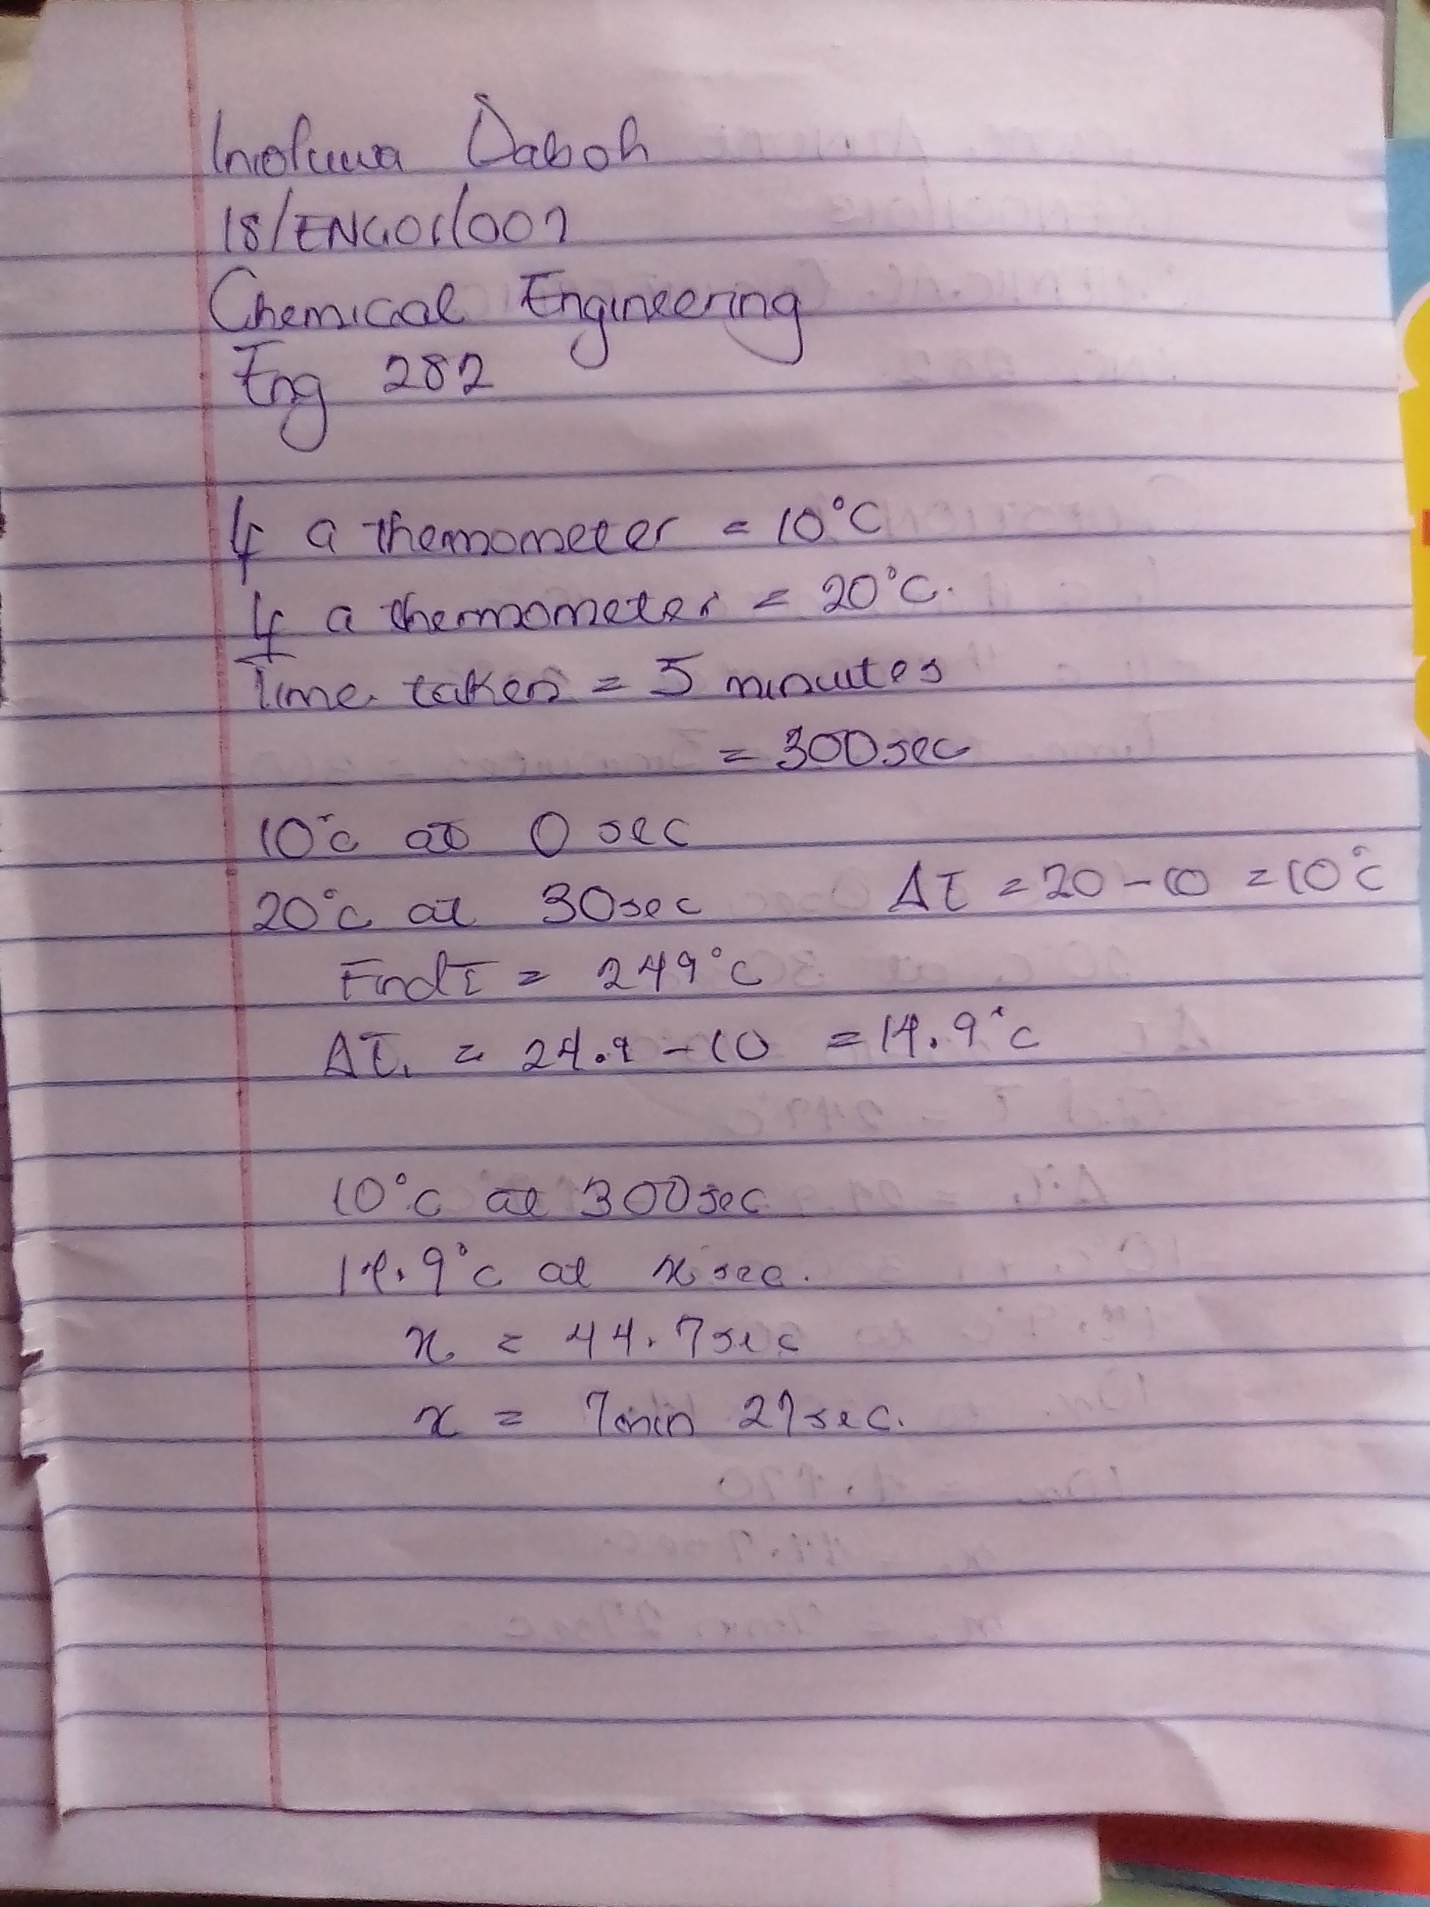 Inioluwa Daboh
18/ENG01/007
Chemical Engineering
Eng 282
If a themometer = 10°C
If a thermometer = 20°C.
Time taken = 5 minutes
= 300sec
10°c at 0 sec
20°c at 30sec ΔT = 20 - 10 = 10°c
Find T = 249°c
ΔT, = 24.9 - 10 = 14.9°c
10°c at 300sec
14.9°c at x sec.
x = 44.7sec
x = 7min 27sec.